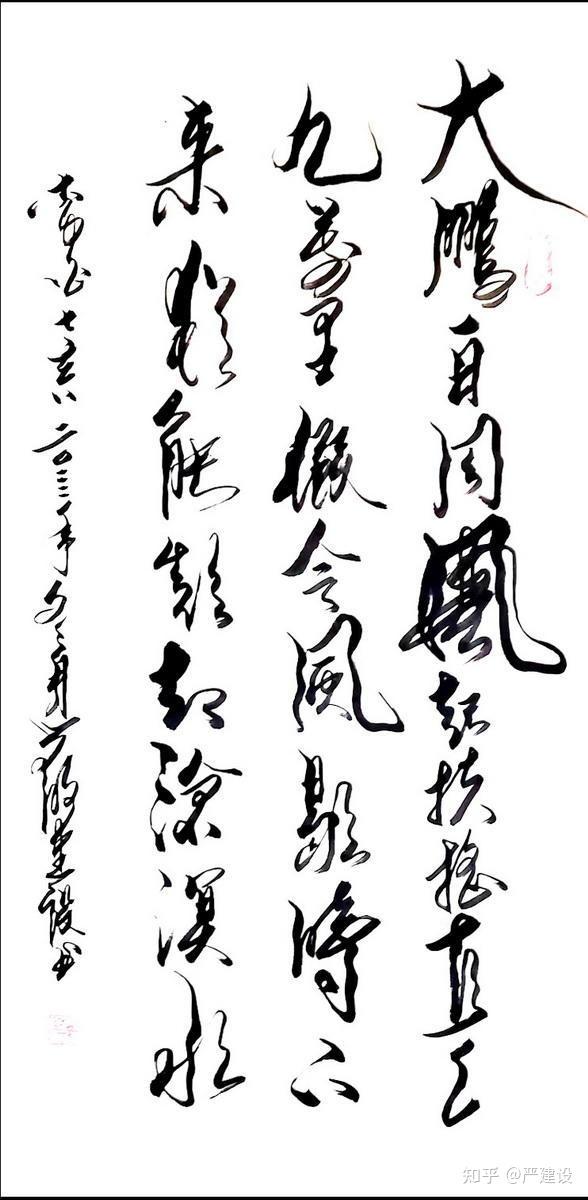 大鵬一日同風起扶搖直上
九萬里假令風歇時下
来猶能簸却滄溟水
二〇二三年 月 嚴建設书
知乎 @严建设